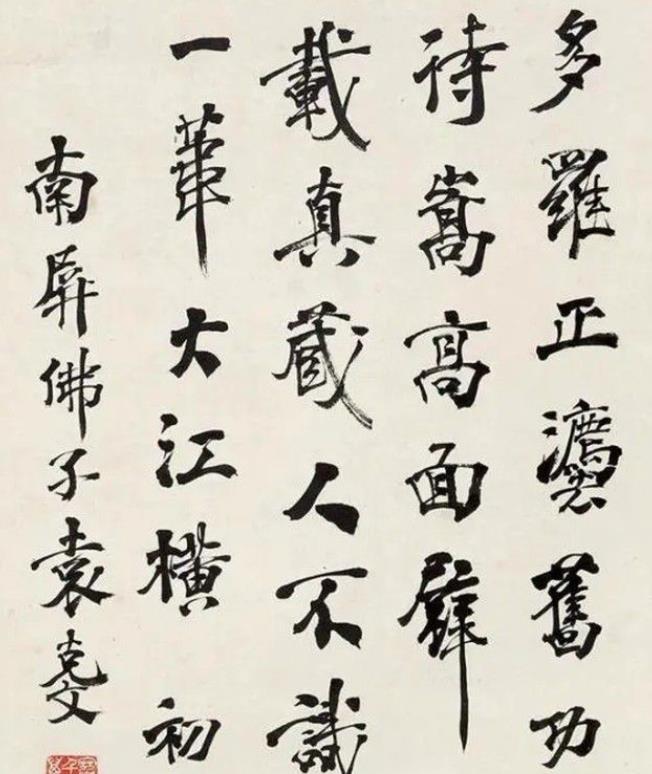 多羅正灋舊功
待嵩高面壁
載真藏人不識
一葦大江橫初
南屏佛子袁克文